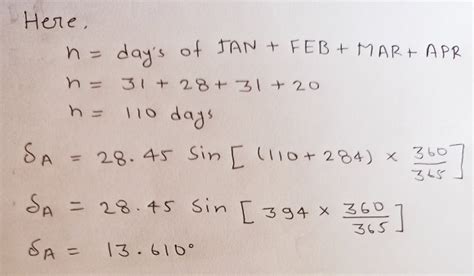 Here,
n = day's of JAN + FEB + MAR + APR
n = 31 + 28 + 31 + 20
n = 110 days
δA = 28.45 Sin [ (110 + 284) × 360/365 ]
δA = 28.45 Sin [ 394 × 360/365 ]
δA = 13.610°